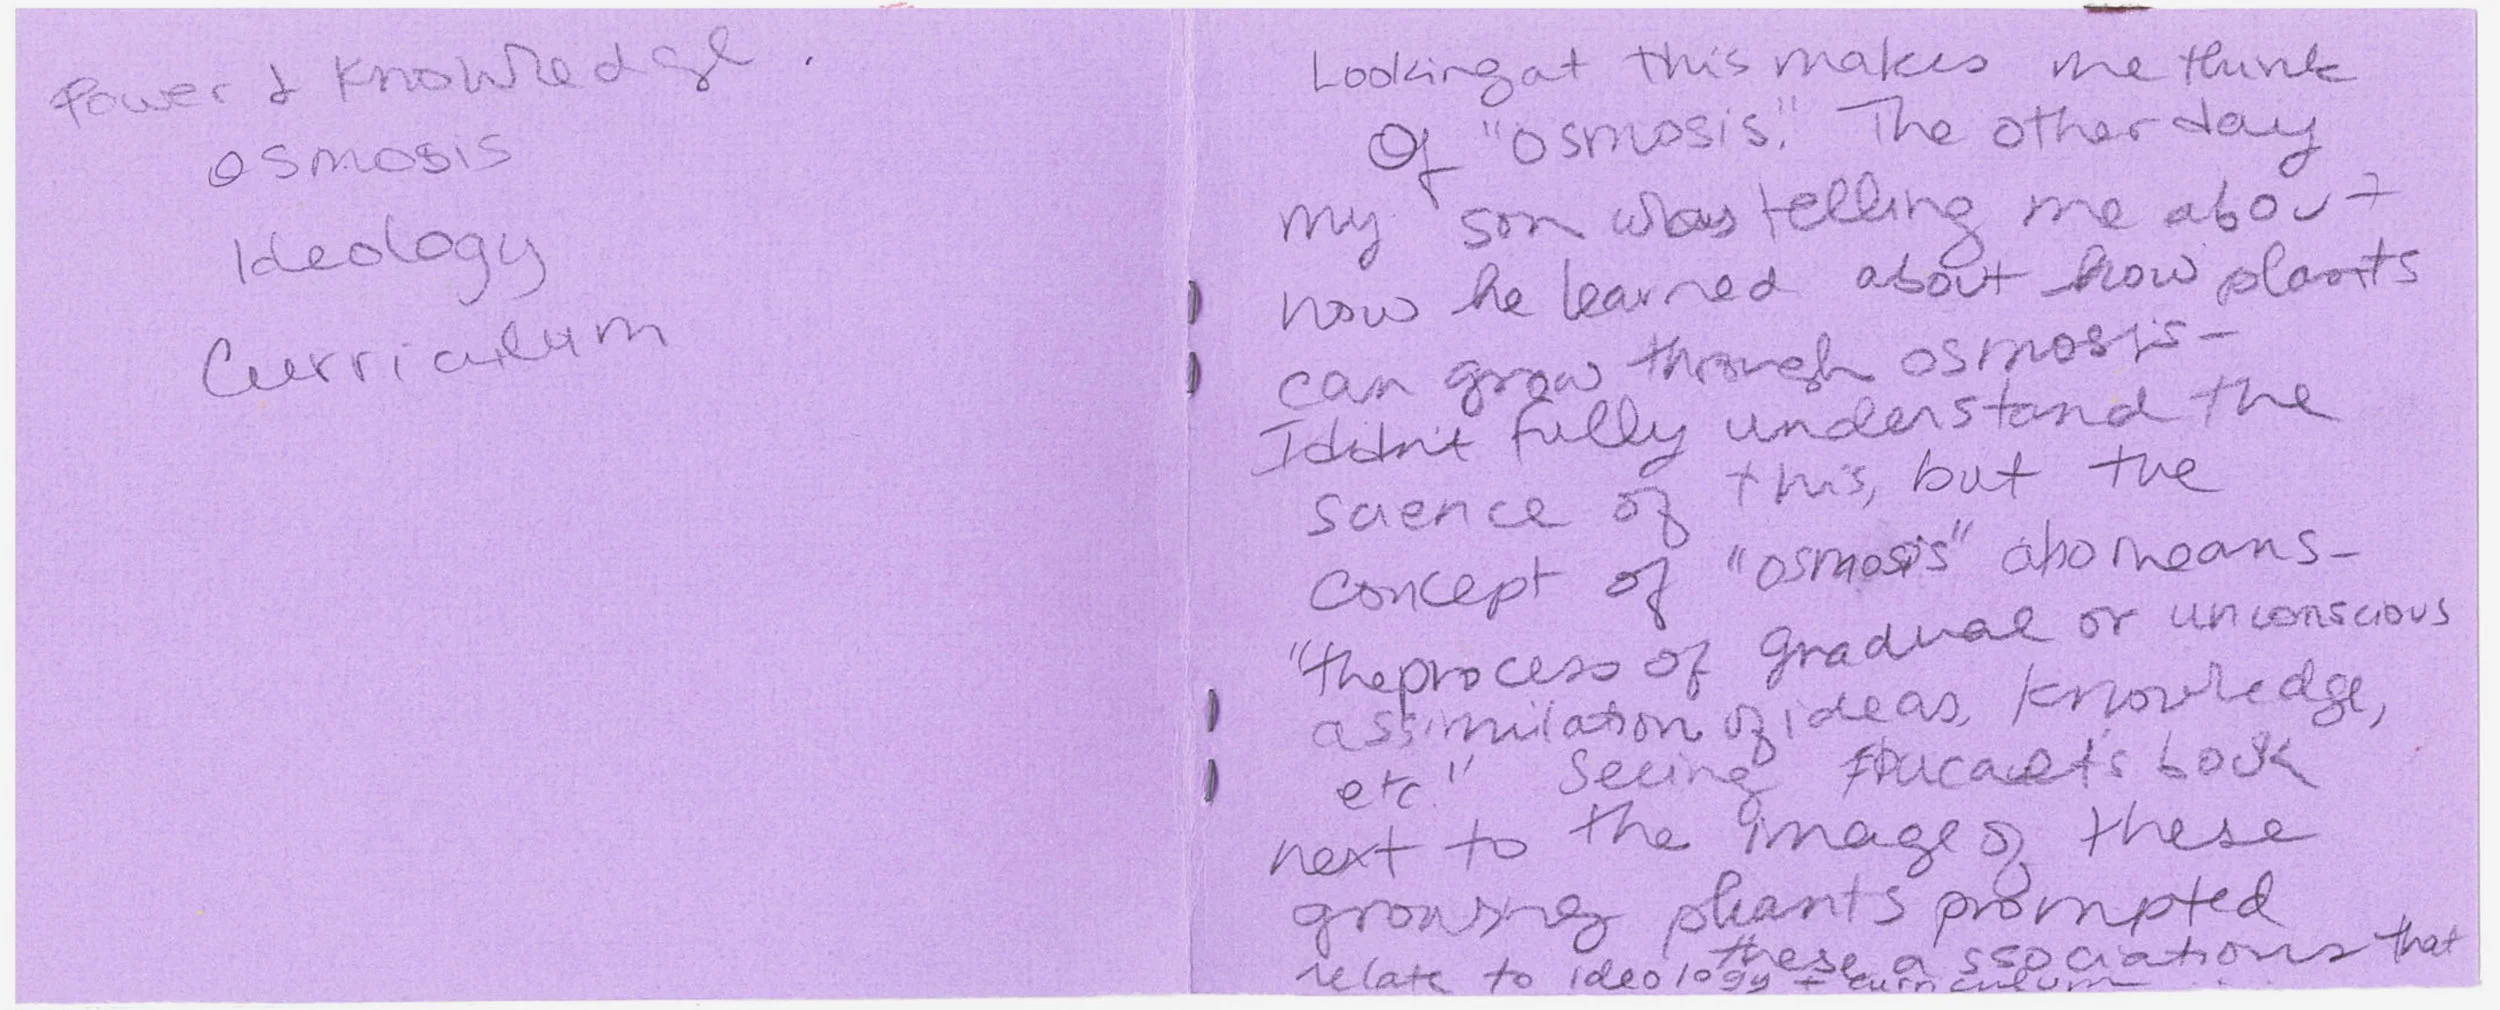 Power & Knowledge.
Osmosis
Ideology
Curriculum
Looking at this makes me think
Of "osmosis." The other day
my son was telling me about
how he learned about how plants
can grow through osmosis-
I didn't fully understand the
science of this, but the
concept of "osmosis" also means-
"the process of gradual or unconscious
assimilation of ideas, knowledge,
etc." Seeing Foucault's book
next to the image of these
growing plants prompted
these associations that
relate to ideology + curriculum